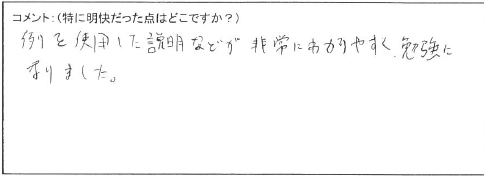 コメント:(特に明快だった点はどこですか?)
例を使用した説明などが非常にわかりやすく、勉強に
なりました。